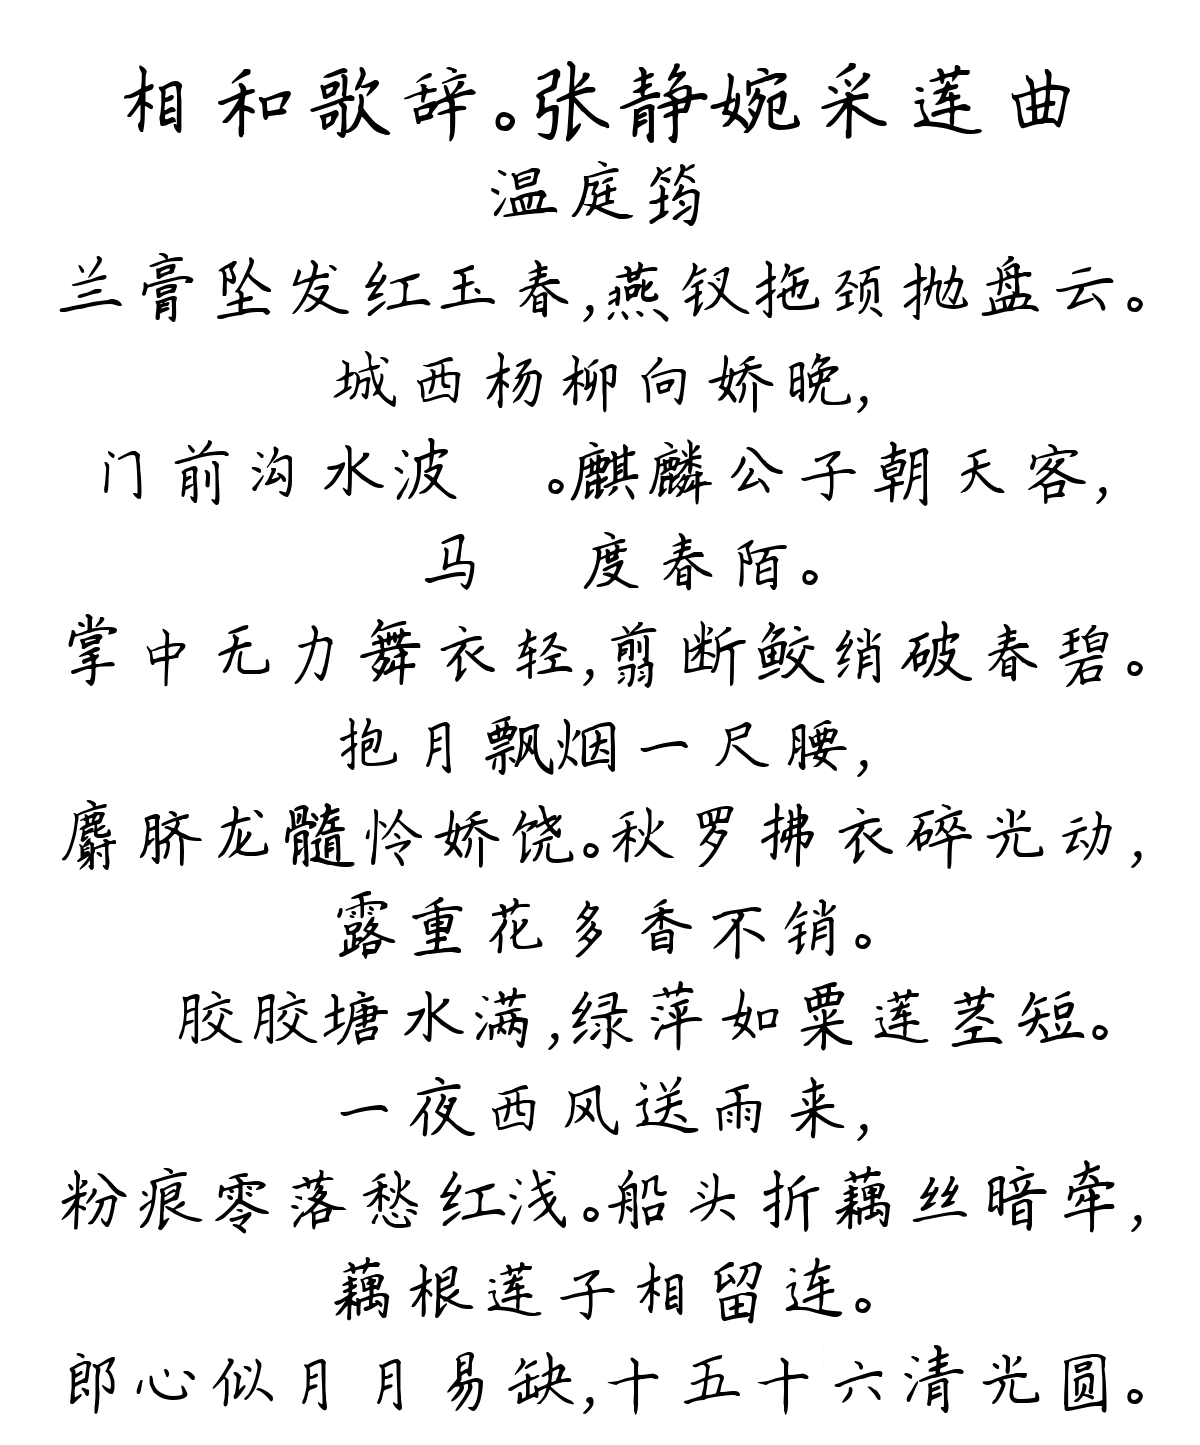 相和歌辞。张静婉采莲曲
温庭筠
兰膏坠发红玉春,燕钗拖颈抛盘云。
城西杨柳向娇晚,
门前沟水波 。麒麟公子朝天客,
马 度春陌。
掌中无力舞衣轻,翦断鲛绡破春碧。
抱月飘烟一尺腰,
麝脐龙髓怜娇饶。秋罗拂衣碎光动,
露重花多香不销。
胶胶塘水满,绿萍如粟莲茎短。
一夜西风送雨来,
粉痕零落愁红浅。船头折藕丝暗牵,
藕根莲子相留连。
郎心似月月易缺,十五十六清光圆。